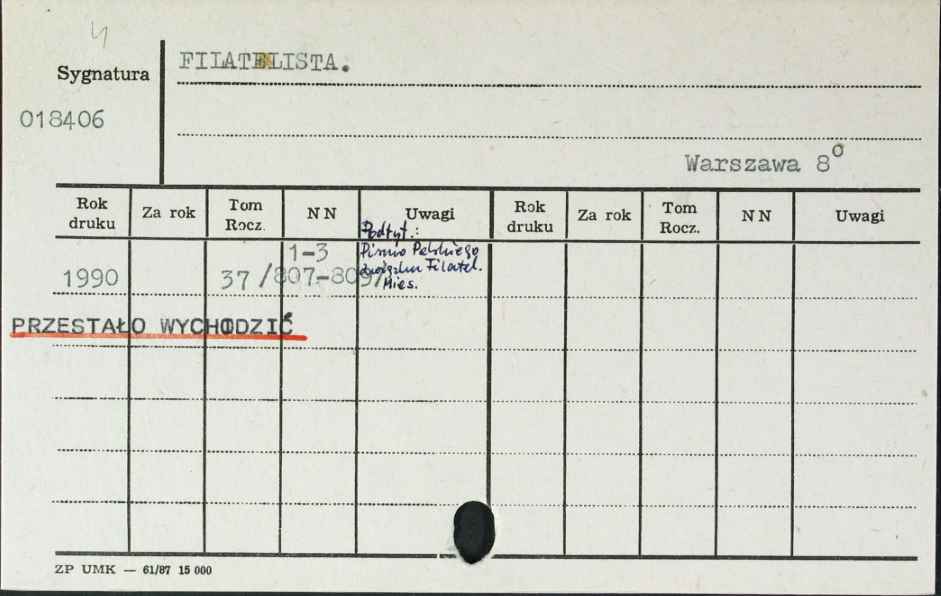 4
FILATELISTA.
Sygnatura
018406
Warszawa 8°
Rok druku Za rok Tom Rocz. NN Uwagi Rok druku Za rok Tom Rocz. NN Uwagi
Podtyt.:
Pismo Polskiego
Związku Filatel.
Mies.
1-3
1990 37 /807-809/
PRZESTAŁO WYCHODZIĆ
ZP UMK — 61/87 15 000